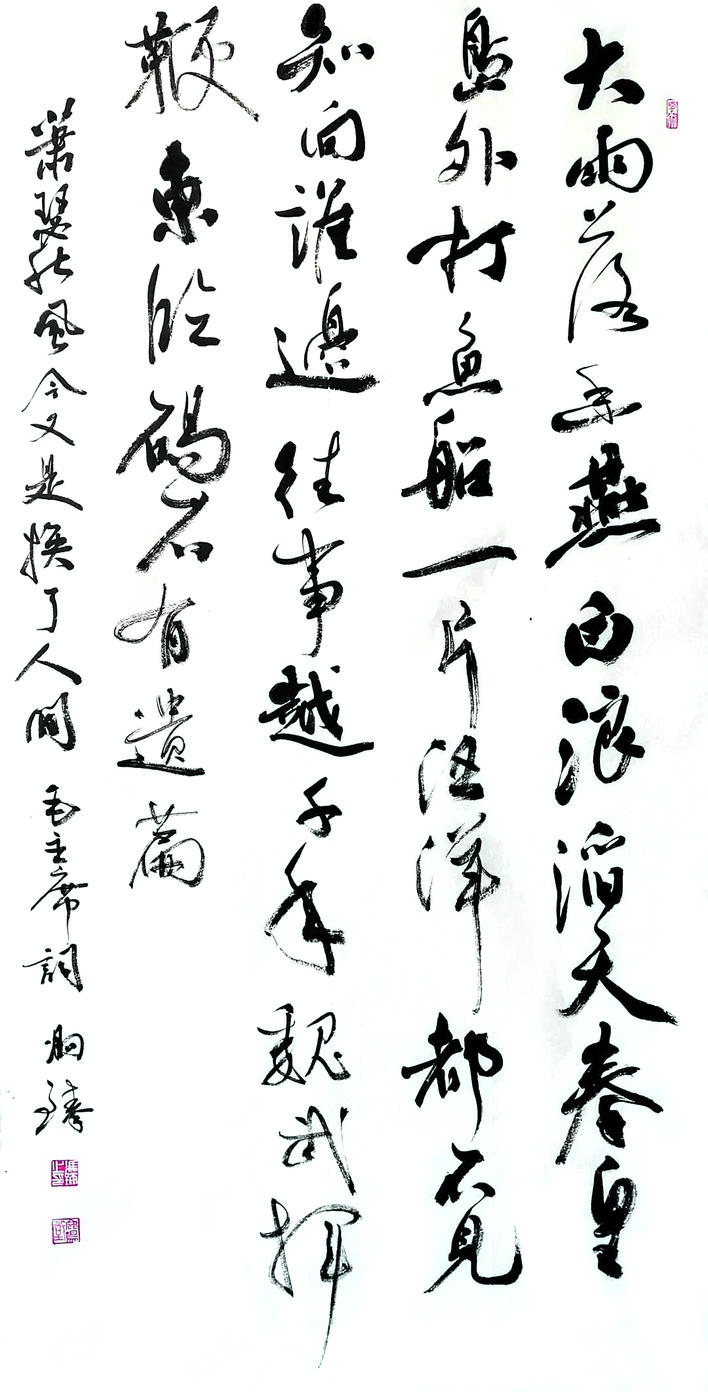 大雨落幽燕白浪滔天秦皇
島外打魚船一片汪洋都不見
知向誰邊往事越千年魏武揮
鞭東臨碣石有遺篇
蕭瑟秋風今又是換了人間 毛主席詞